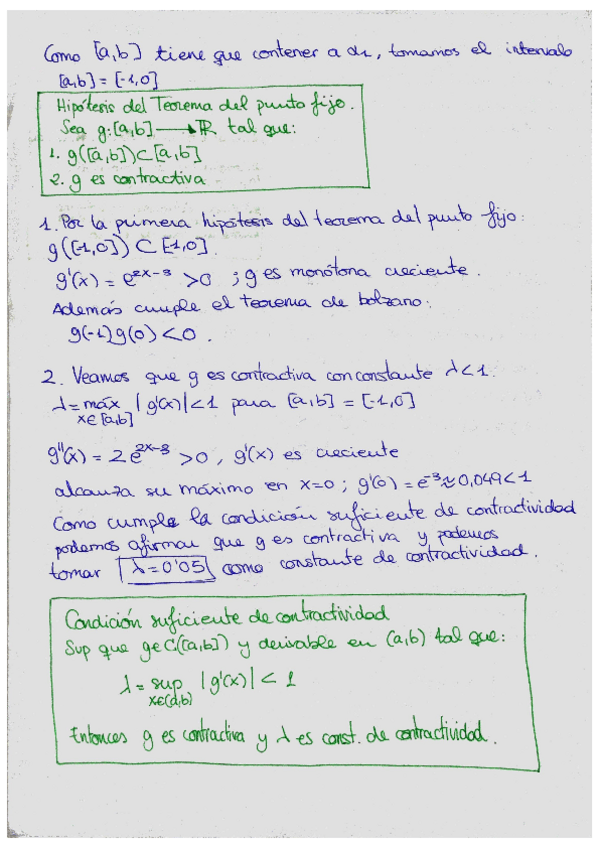 Como [a,b] tiene que contener a α1, tomamos el intervalo
[a,b] = [-1,0]
Hipótesis del Teorema del punto fijo.
Sea g:[a,b] → ℝ tal que:
1. g([a,b]) ⊂ [a,b]
2. g es contractiva
1. Por la primera hipótesis del teorema del punto fijo:
g([-1,0]) ⊂ [-1,0]
g'(x) = e^{2x-3} > 0 ; g es monótona creciente.
Además cumple el teorema de bolzano:
g(-1)g(0) < 0.
2. Veamos que g es contractiva con constante λ < 1.
λ = máx |g'(x)| < 1 para [a,b] = [-1,0]
x∈[a,b]
g''(x) = 2e^{2x-3} > 0, g'(x) es creciente
alcanza su máximo en x=0; g'(0) = e^{-3} ≈ 0,049 < 1
Como cumple la condición suficiente de contractividad
podemos afirmar que g es contractiva y podemos
tomar λ = 0'05 como constante de contractividad.
Condición suficiente de contractividad
Sup que g∈C([a,b]) y derivable en (a,b) tal que:
λ = sup |g'(x)| < 1
x∈(a,b)
Entonces g es contractiva y λ es const. de contractividad.